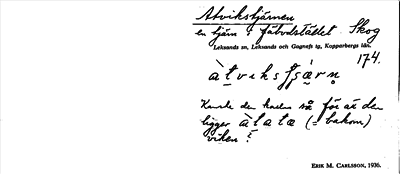 Atvikstjärnen
en tjärn i fäbodstället Skog
Leksands sn, Leksands och Gagnefs tg, Kopparbergs län.
174.
Kanske den kallas så för att den
ligger àtatæ (= bakom)
viken?
ERIK M. CARLSSON, 1936.